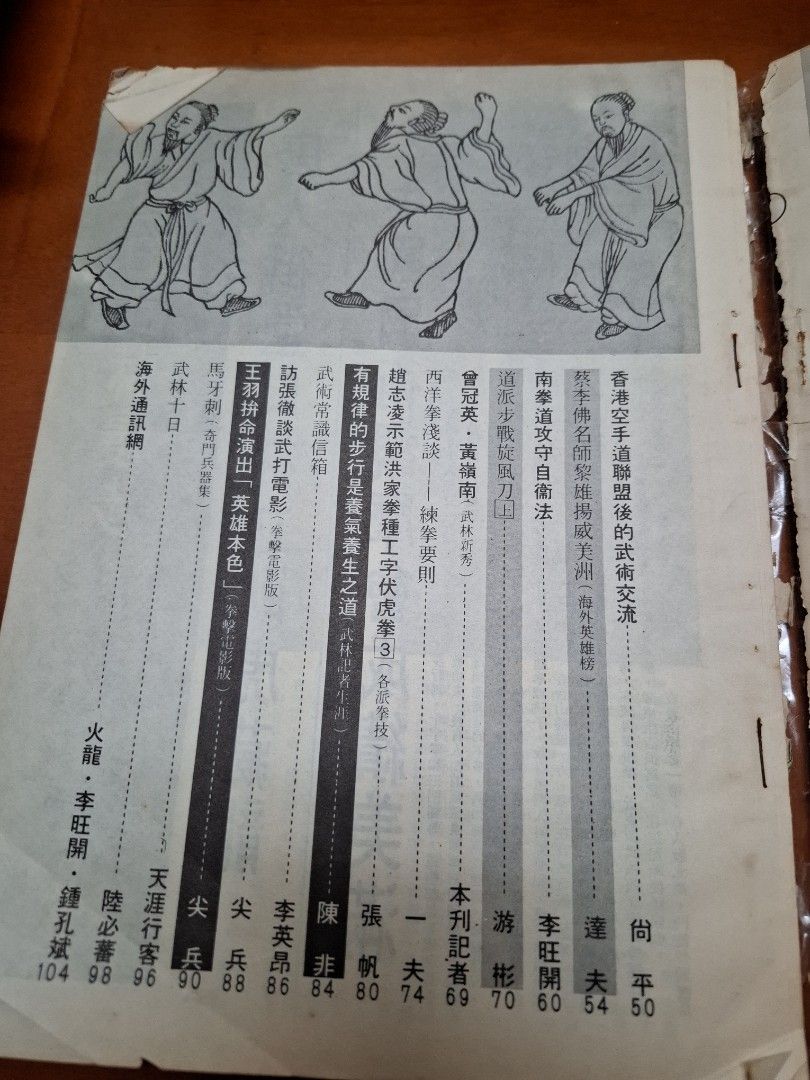 香港空手道聯盟後的武術交流 尙平 50
蔡李佛名師黎雄揚威美洲（海外英雄榜） 達夫 54
南拳道攻守自衞法 李旺開 60
道派步戰旋風刀上 游彬 70
曾冠英・黃嶺南（武林新秀） 本刊記者 69
西洋拳淺談——練拳要則 一夫 74
趙志凌示範洪家拳種工字伏虎拳3（各派拳技） 張帆 80
有規律的步行是養氣養生之道（武林記者生涯） 陳非 84
武術常識信箱 李英昂 86
訪張徹談武打電影（拳擊電影版） 尖兵 88
王羽拚命演出「英雄本色」（拳擊電影版） 尖兵 90
馬牙刺（奇門兵器集） 天涯行客 96
武林十日 陸必蕃 98
海外通訊網 火龍・李旺開・鍾孔斌 104